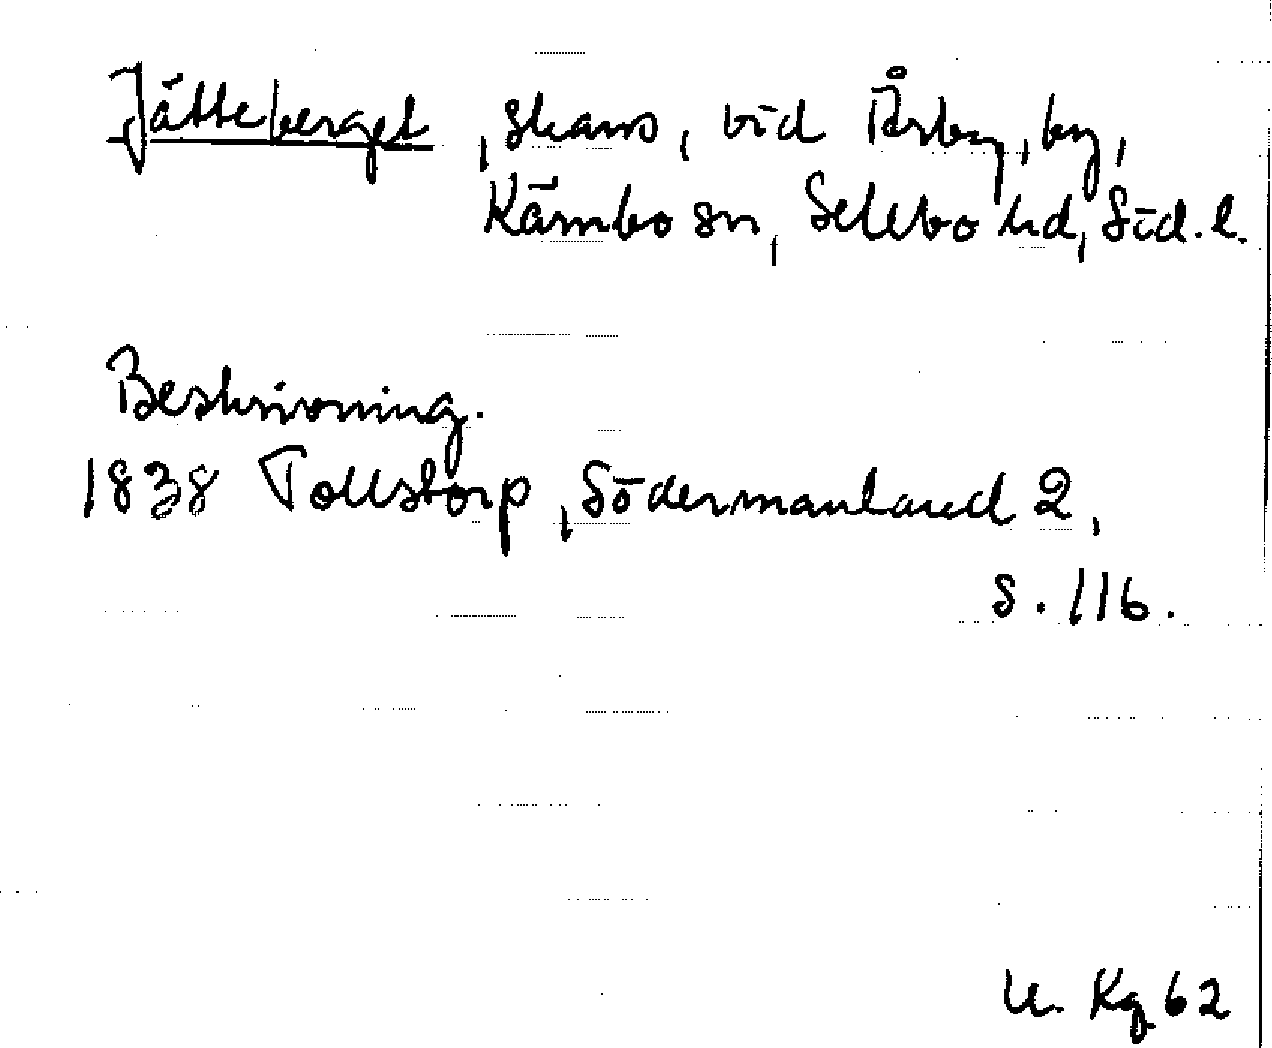 Jätteberget, skans, vid Årby, by,
Kärnbo sn, Selebo hd, Söd. l.
Beskrivning.
1838 Tollstorp, Södermanland 2,
s. 116.
U. Kg 62